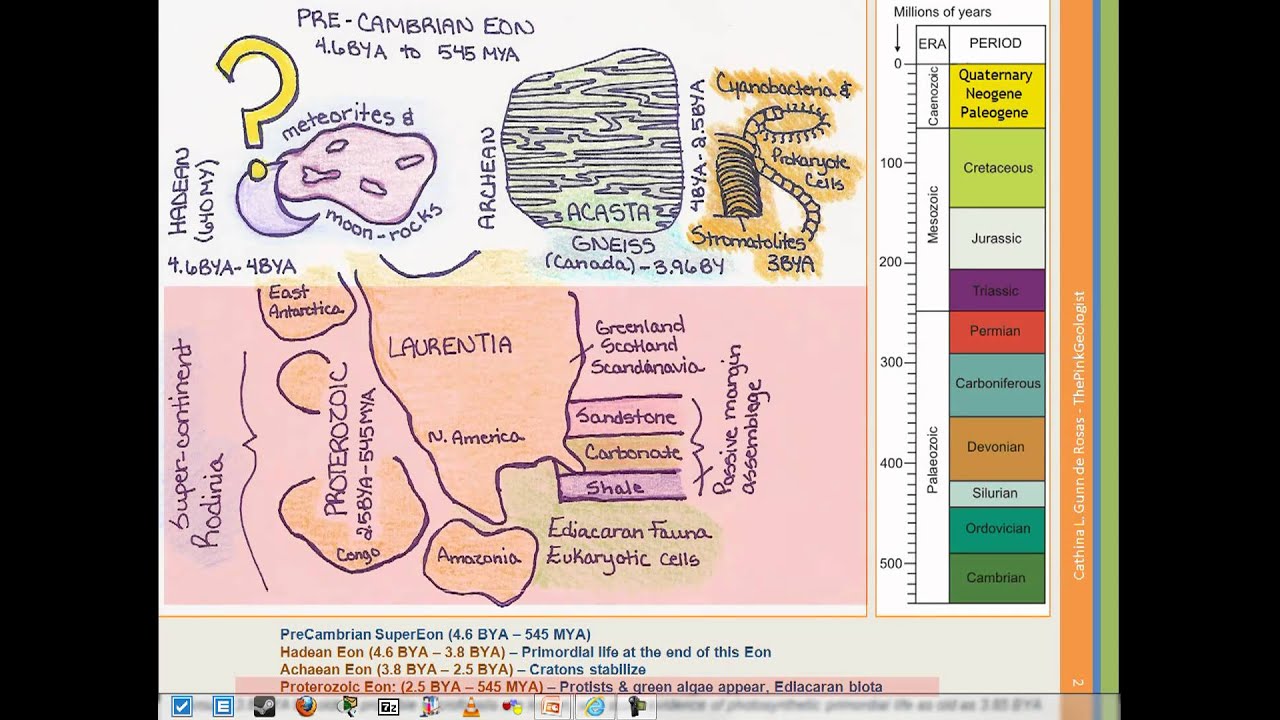 PRE-CAMBRIAN EON
4.6BYA to 545 MYA
HADEAN
(640MY)
4.6BYA-4BYA
meteorites &
moon-rocks
ARCHEAN
4BYA-2.5BYA
ACASTA
GNEISS
(Canada)-3.96BY
Cyanobacteria &
Prokaryote
Cells
Stromatolites
3BYA
Super-continent
Rodinia
East
Antarctica
PROTEROZOIC
2.5BYA-545MYA
LAURENTIA
N. America
Congo
Amazonia
Greenland
Scotland
Scandanavia
Sandstone
Carbonate
Shale
Passive margin
assemblage
Ediacaran Fauna
Eukaryotic Cells
Millions of years
ERA PERIOD
0
100
200
300
400
500
Caenozoic
Mesozoic
Palaeozoic
Quaternary
Neogene
Paleogene
Cretaceous
Jurassic
Triassic
Permian
Carboniferous
Devonian
Silurian
Ordovician
Cambrian
Cathina L. Gunn de Rosas - ThePinkGeologist
2
PreCambrian SuperEon (4.6 BYA – 545 MYA)
Hadean Eon (4.6 BYA – 3.8 BYA) – Primordial life at the end of this Eon
Achaean Eon (3.8 BYA – 2.5 BYA) – Cratons stabilize
Proterozoic Eon: (2.5 BYA – 545 MYA) – Protists & green algae appear, Ediacaran biota
7z